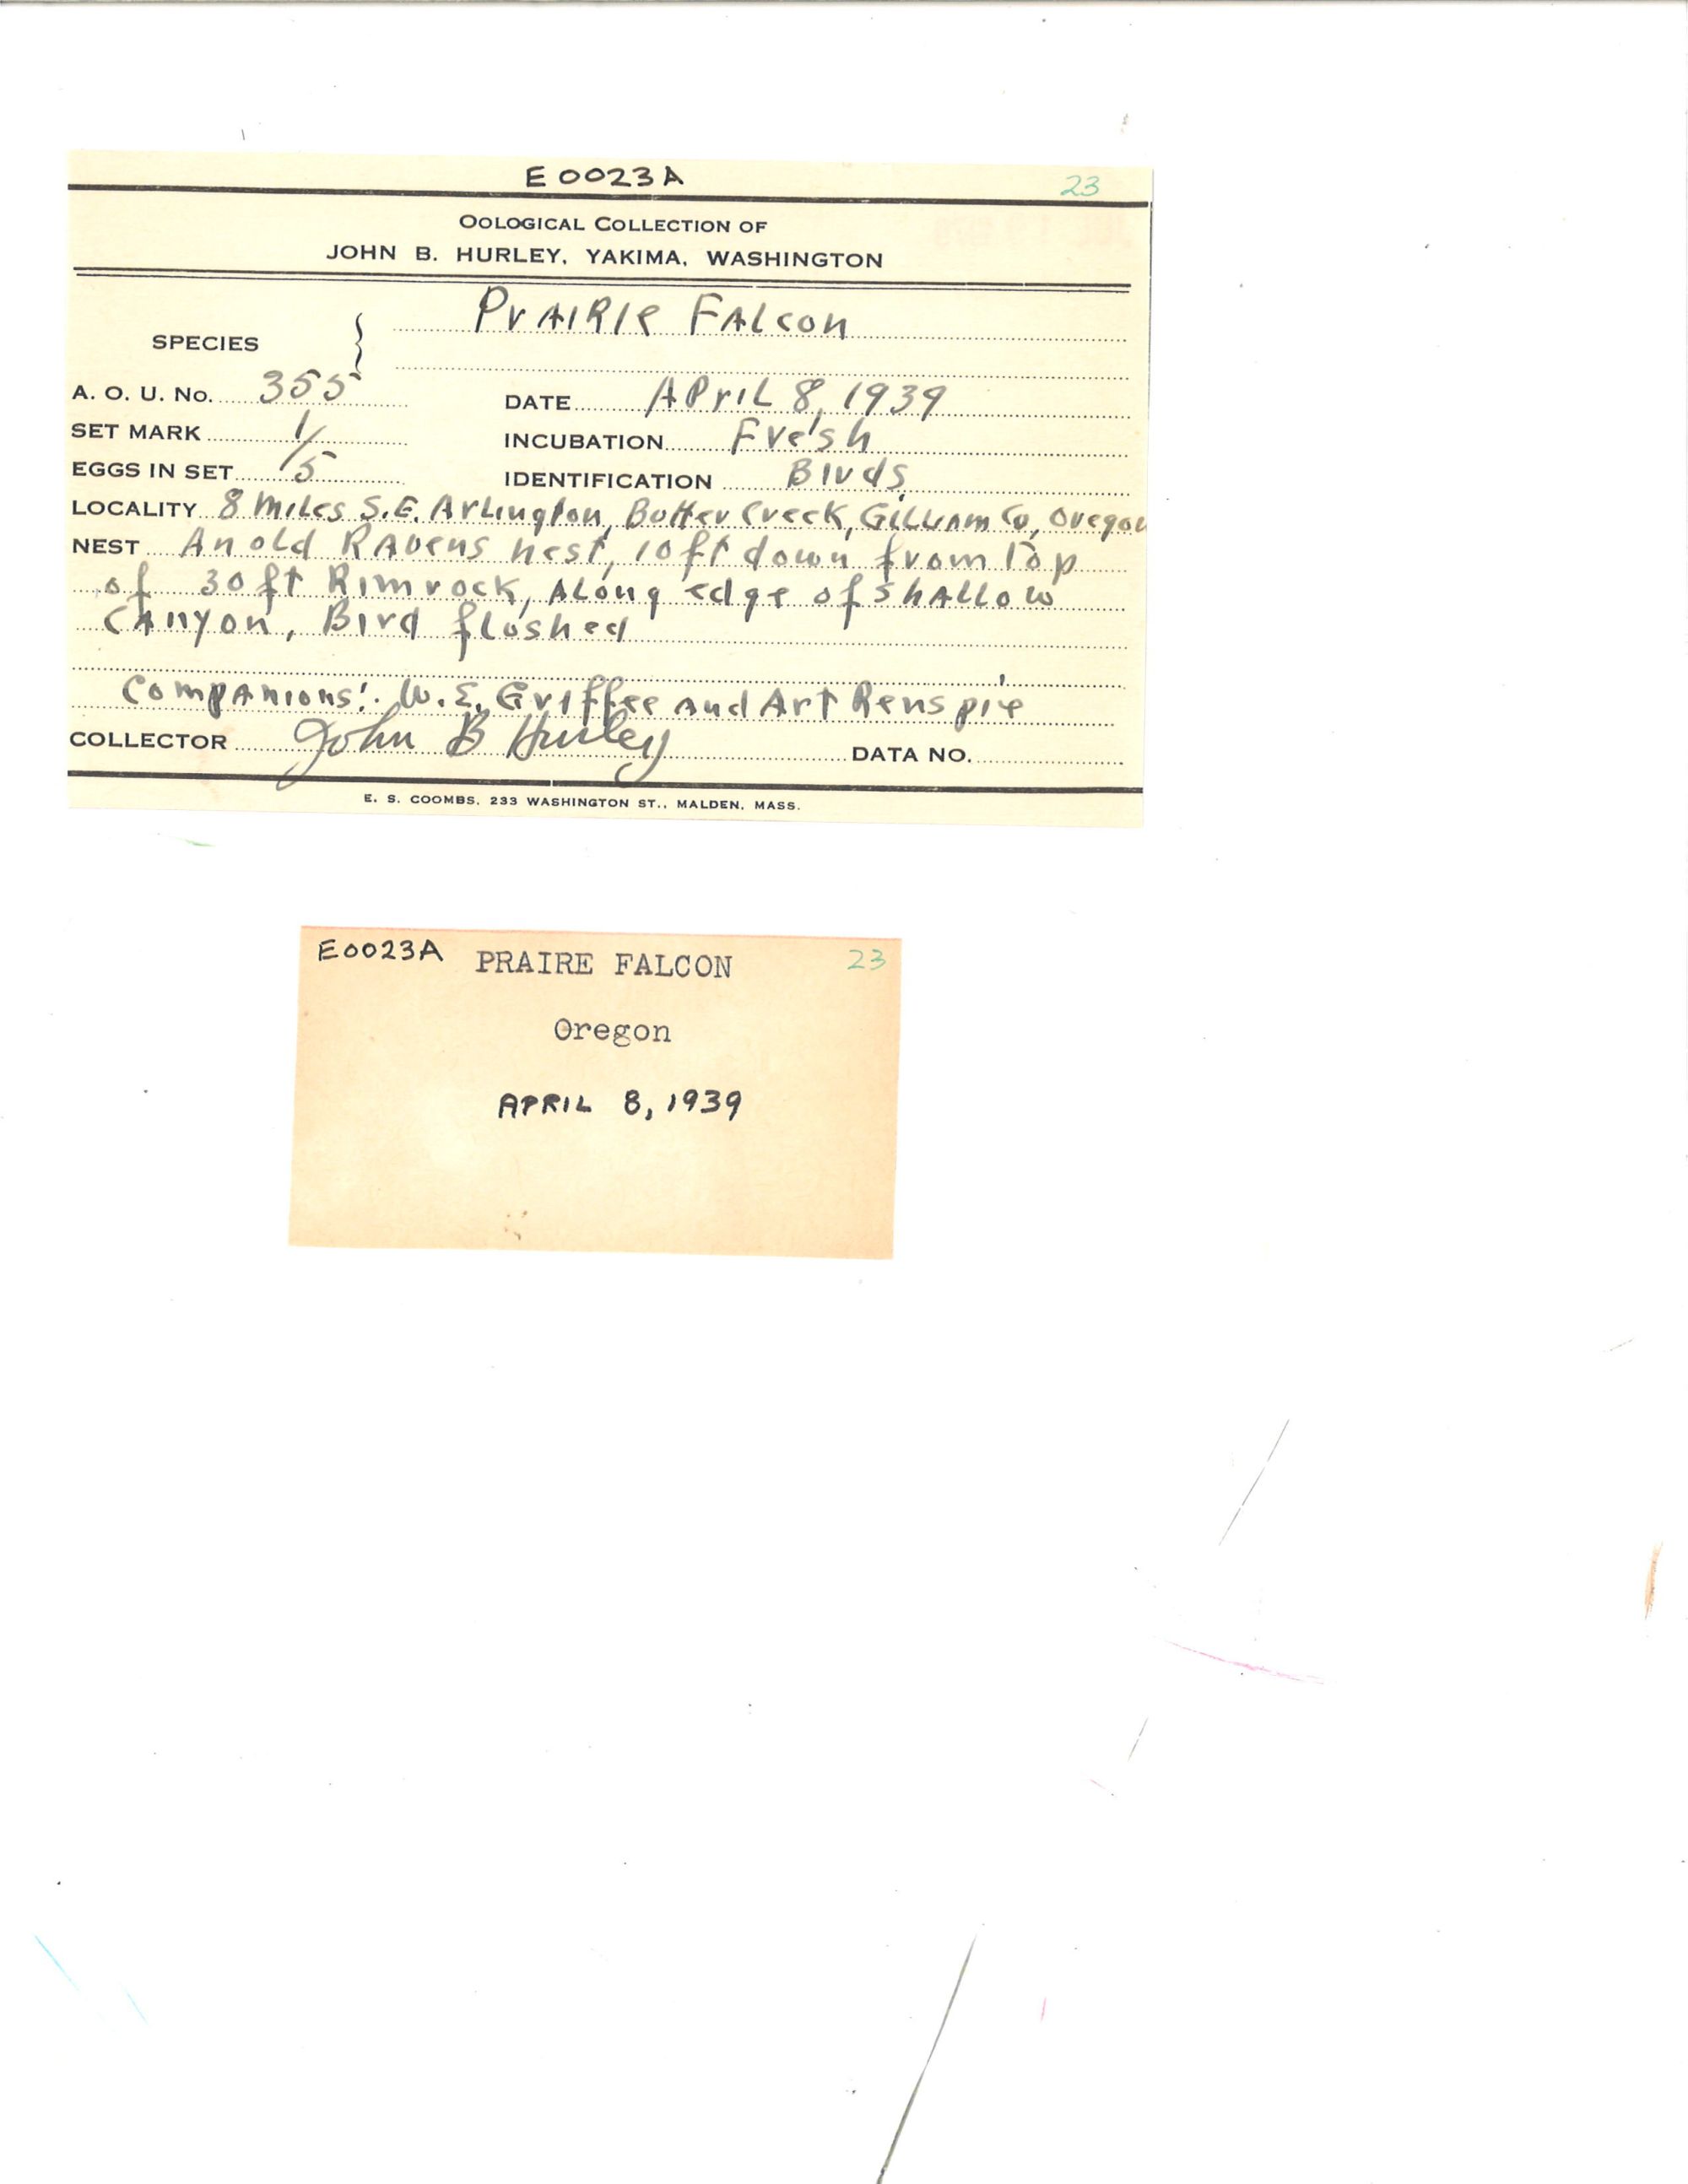 E0023A 23
OOLOGICAL COLLECTION OF
JOHN B. HURLEY, YAKIMA, WASHINGTON
SPECIES } Prairie Falcon
A. O. U. No. 355 DATE April 8, 1939
SET MARK 1/ INCUBATION Fresh
EGGS IN SET 5 IDENTIFICATION Birds
LOCALITY 8 Miles S.E. Arlington, Butter Creek, Gilliam Co, Oregon
NEST An old Ravens nest, 10ft down from Top
of 30 ft Rimrock, Along edge of shallow
Canyon, Bird flushed
Companions: W.E. Griffee and Art Renspie
COLLECTOR John B Hurley DATA NO.
E. S. COOMBS, 233 WASHINGTON ST., MALDEN, MASS.
E0023A PRAIRE FALCON 23
Oregon
APRIL 8, 1939